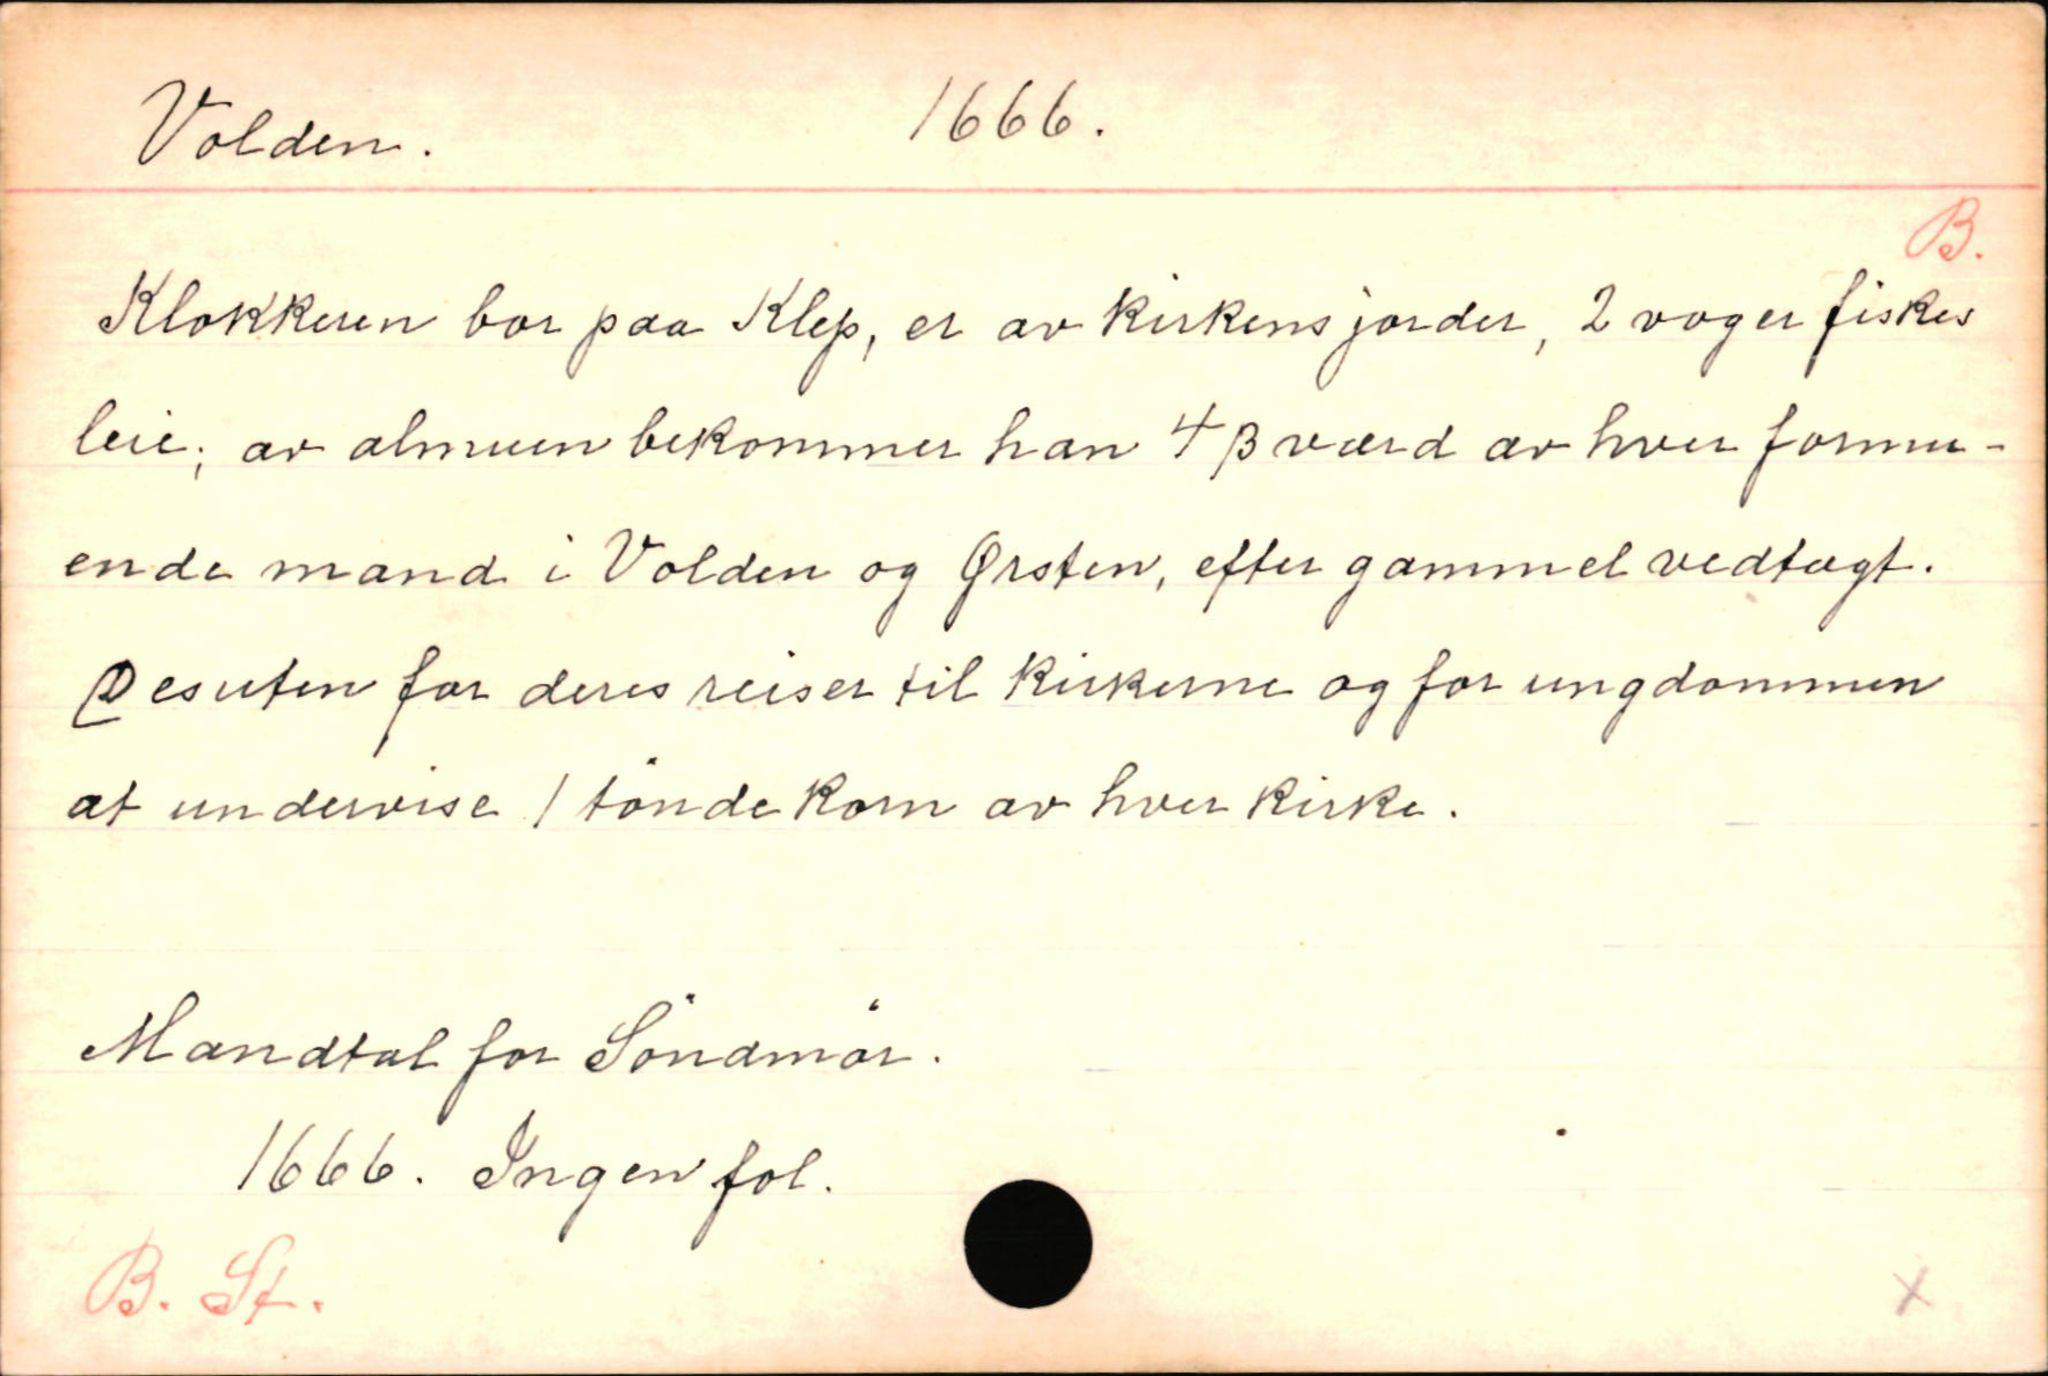 Volden. 1666.
B.
Klokkeren bor paa Klep, er av kirkens jorder, 2 voger fiskes
leie; av almuen bekommer han 4 β værd av hver formu-
ende mand i Volden og Ørsten, efter gammel vedtægt.
Desuten for deres reiser til kirkerne og for ungdommen
at undervise 1 tönde korn av hver kirke.
Mandtal for Söndmör.
1666. Ingen fol.
B. St.
X